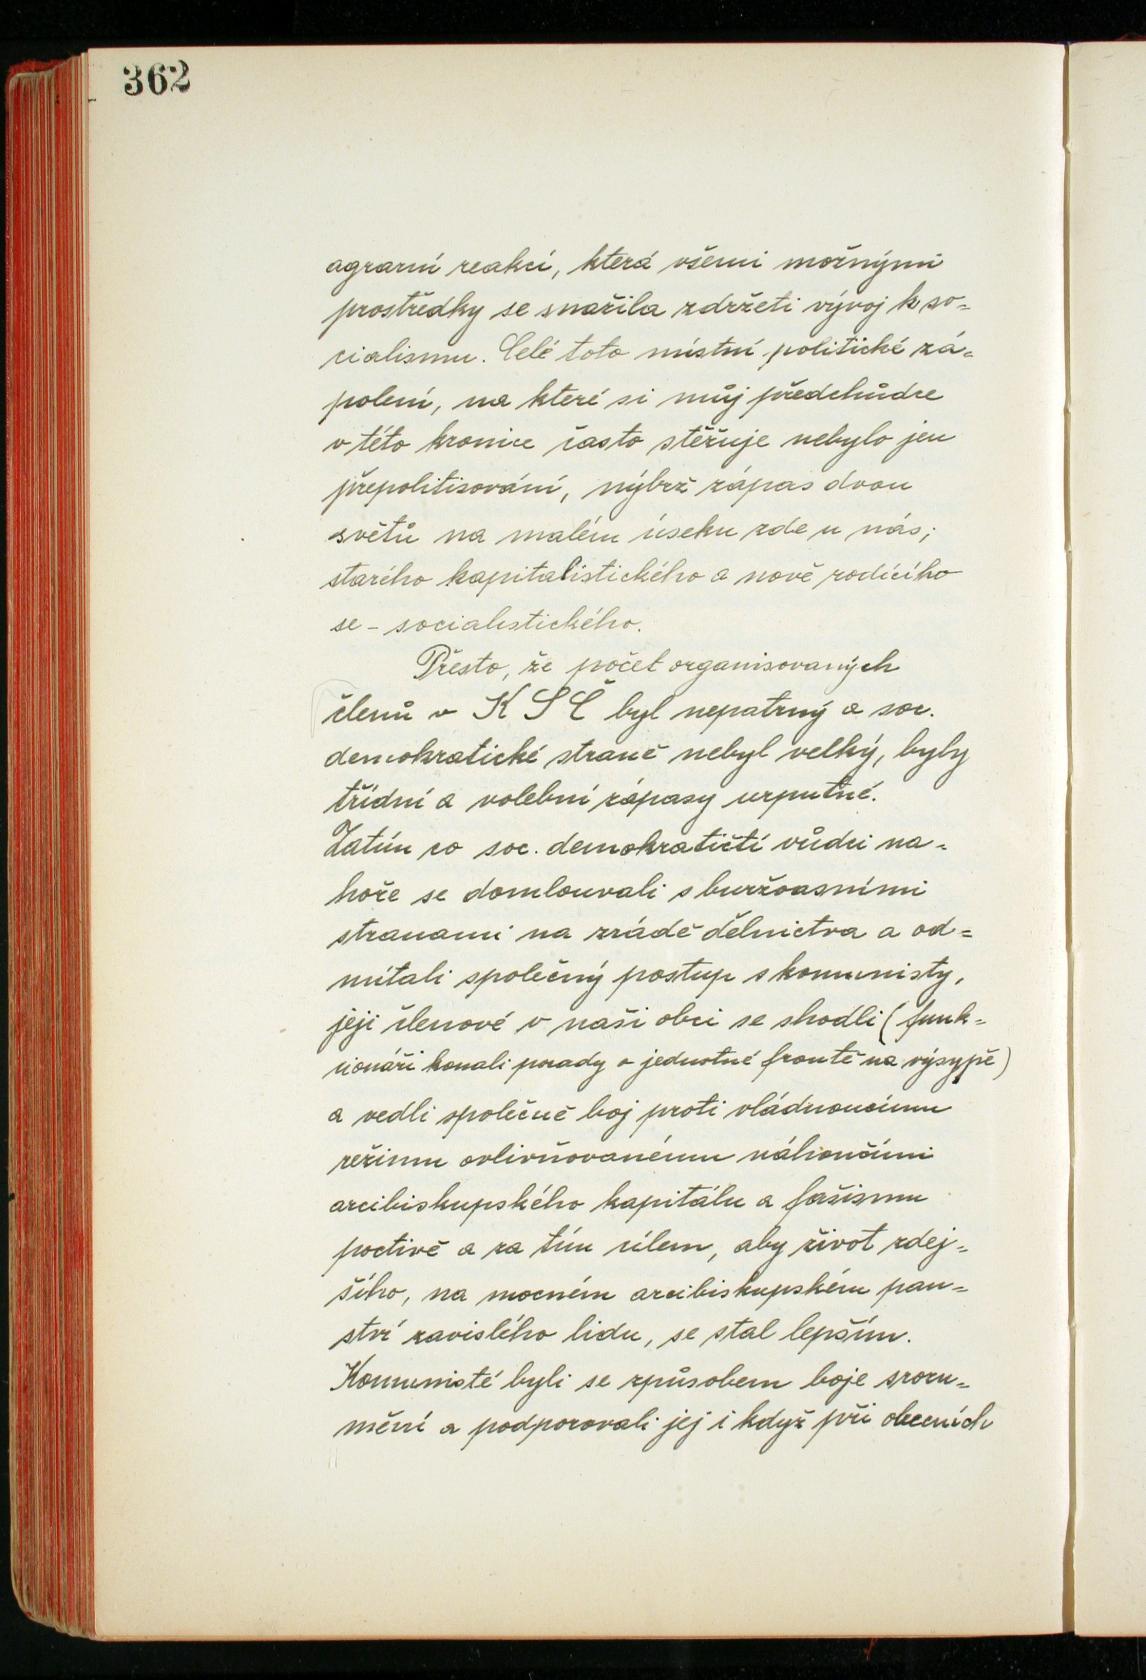 362
agrarní reakcí, která všemi možnými
prostředky se snažila zdržeti vývoj k so=
cialismu. Celé toto místní politické zá=
polení, na které si můj předchůdce
v této kronice často stěžuje nebylo jen
přepolitisování, nýbrž zápas dvou
světů na malém úseku zde u nás;
starého kapitalistického a nově rodícího
se - socialistického.
Přesto, že počet organisovaných
členů v KSČ byl nepatrný a soc.
demokratické straně nebyl velký, byly
třídní a volební zápasy urputné.
Zatím co soc. demokratičtí vůdci na=
hoře se domlouvali s buržoasními
stranami na zrádě dělnictva a od=
mítali společný postup s komunisty,
její členové v naši obci se shodli (funk=
cionáři konali porady o jednotné frontě na výsypě)
a vedli společně boj proti vládnoucímu
režimu ovlivňovanému náhončími
arcibiskupského kapitálu a fašismu
poctivě a za tím cílem, aby život zdej=
šího, na mocném arcibiskupském pan=
ství zavislého lidu, se stal lepším.
Komunisté byli se způsobem boje srozu=
mění a podporovali jej i když při obecních